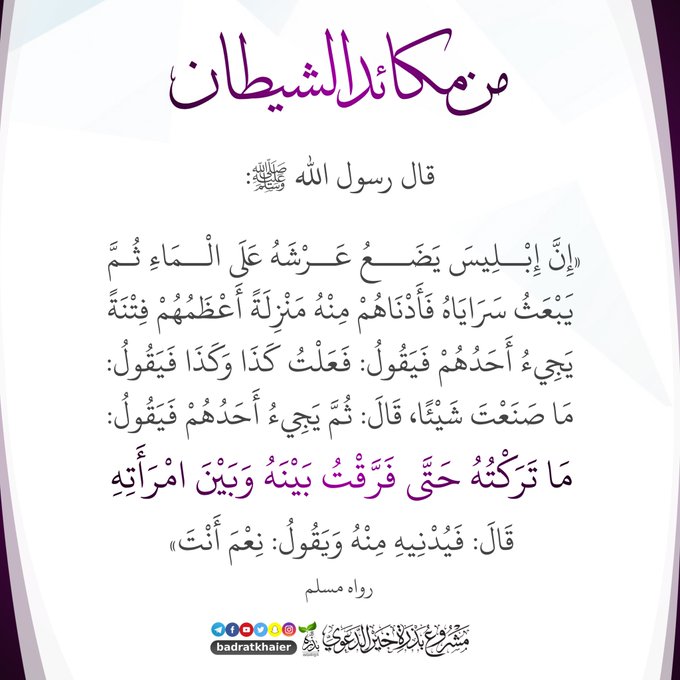 من مكائد الشيطان
قال رسول الله ﷺ:
«إِنَّ إِبْلِيسَ يَضَعُ عَرْشَهُ عَلَى الْمَاءِ ثُمَّ
يَبْعَثُ سَرَايَاهُ فَأَدْنَاهُمْ مِنْهُ مَنْزِلَةً أَعْظَمُهُمْ فِتْنَةً
يَجِيءُ أَحَدُهُمْ فَيَقُولُ: فَعَلْتُ كَذَا وَكَذَا فَيَقُولُ:
مَا صَنَعْتَ شَيْئًا، قَالَ: ثُمَّ يَجِيءُ أَحَدُهُمْ فَيَقُولُ:
مَا تَرَكْتُهُ حَتَّى فَرَّقْتُ بَيْنَهُ وَبَيْنَ امْرَأَتِهِ
قَالَ: فَيُدْنِيهِ مِنْهُ وَيَقُولُ: نِعْمَ أَنْتَ»
رواه مسلم
مَشْرُوعُ بَذْرَةِ خَيْرٍ الدَّعَوِي
بذرة
badratkhaier